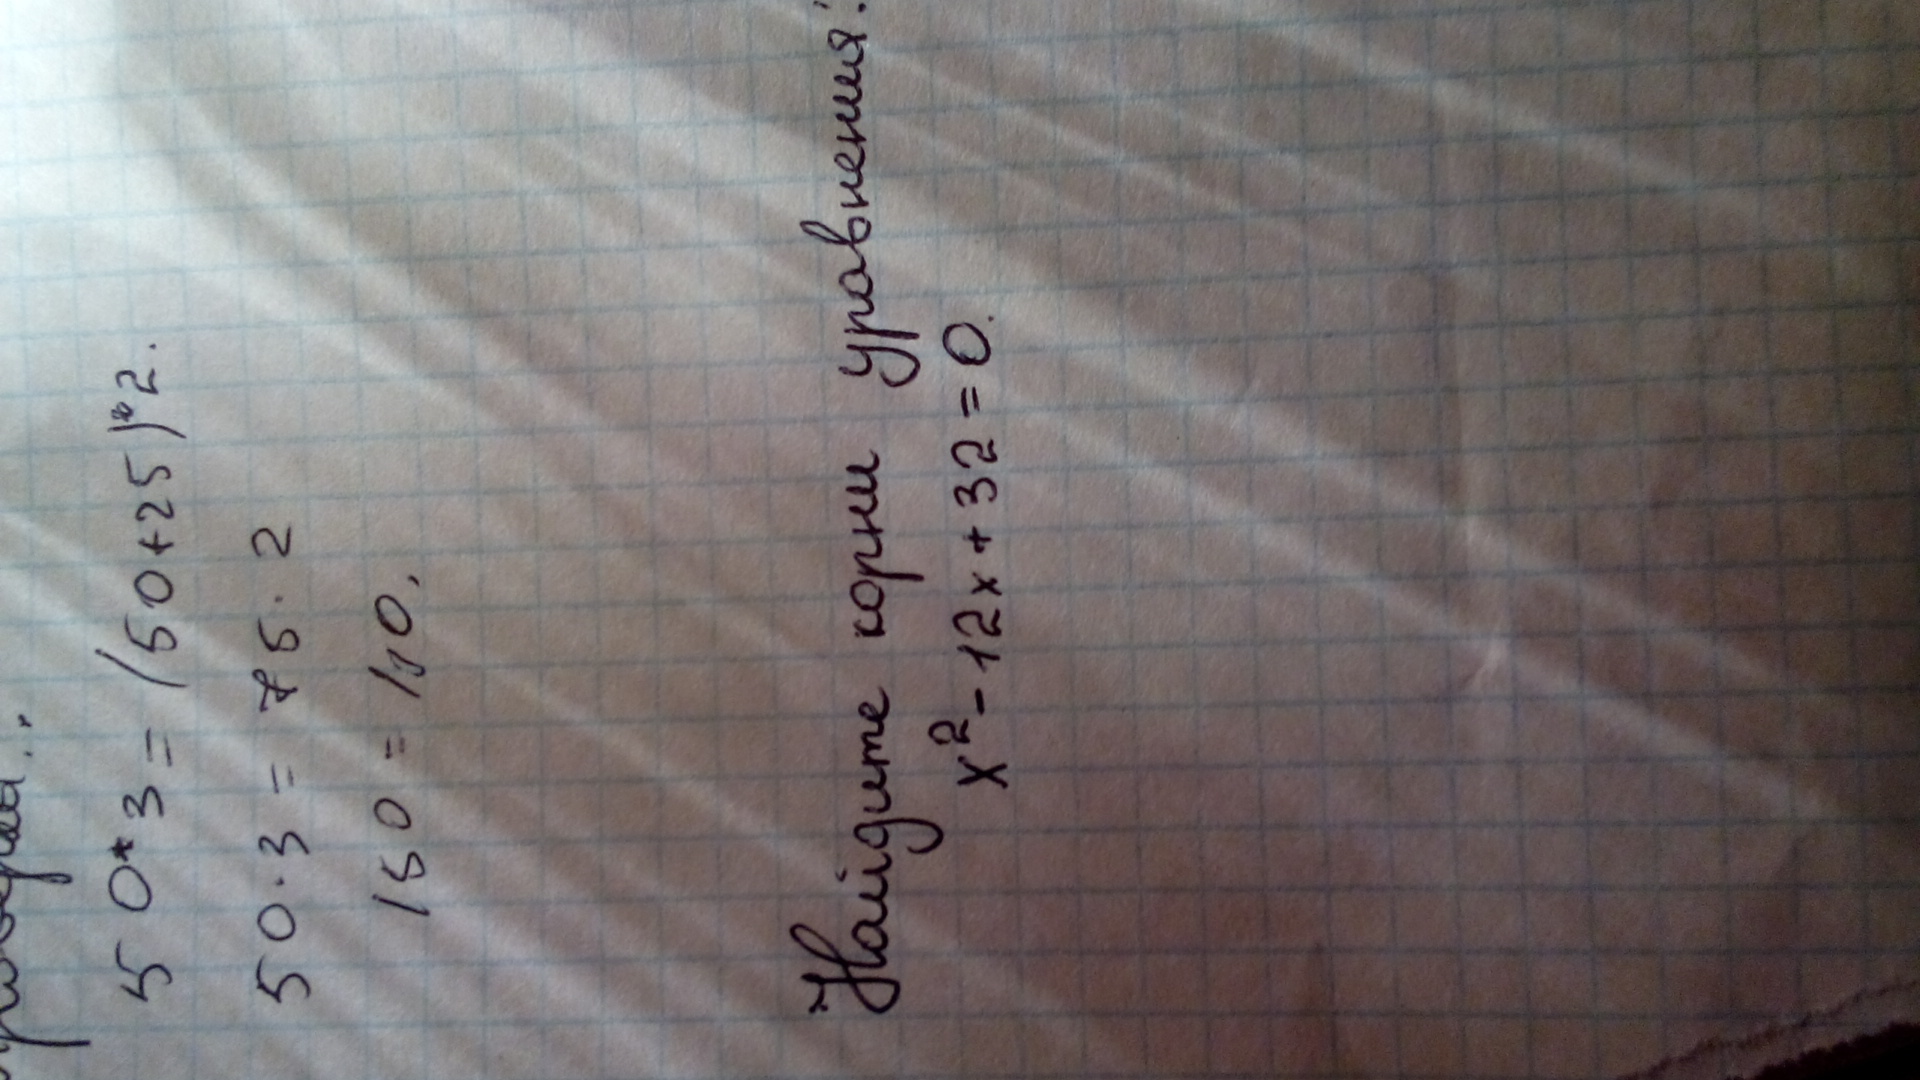 50*3=(50+25)*2.
50·3=75·2
150=110.
Найдите корни уравнения:
x²-12x+32=0.